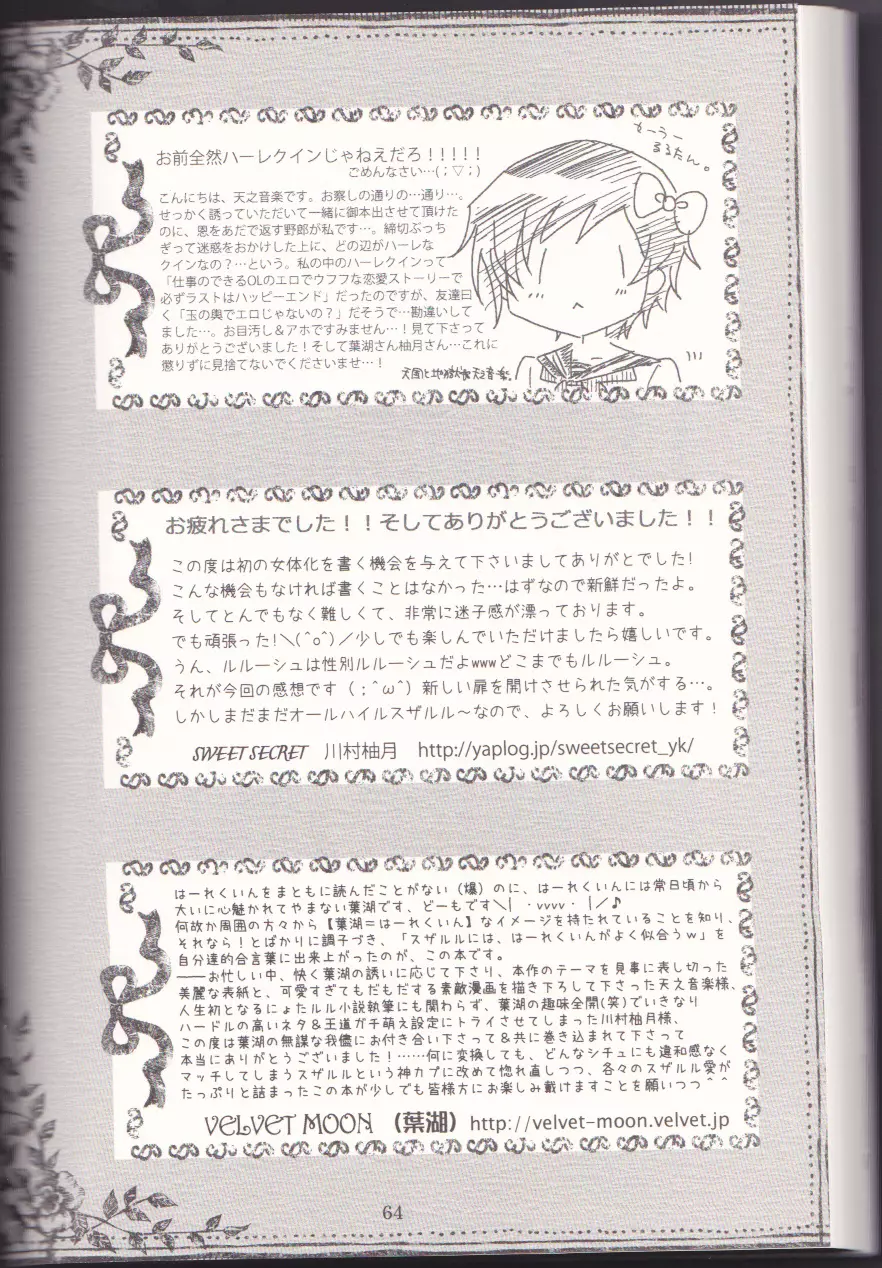 お前全然ハーレクインじゃねえだろ!!!!!
ごめんなさい…(;▽;)
こんにちは、天之音楽です。お察しの通りの…通り…。
せっかく誘っていただいて一緒に御本出させて頂けた
のに、恩をあだで返す野郎が私です…。締切ぶっち
ぎって迷惑をおかけした上に、どの辺がハーレな
クインなの?…という。私の中のハーレクインって
「仕事のできるOLのエロでウフフな恋愛ストーリーで
必ずラストはハッピーエンド」だったのですが、友達曰
く「玉の輿でエロじゃないの?」だそうで…勘違いして
ました…。お目汚し&アホですみません…!見て下さって
ありがとうございました!そして葉湖さん柚月さん…これに
懲りずに見捨てないでくださいませ…!
天国と地獄 天之音楽
るるたん。
お疲れさまでした!!そしてありがとうございました!!
この度は初の女体化を書く機会を与えて下さいましてありがとでした!
こんな機会もなければ書くことはなかった…はずなので新鮮だったよ。
そしてとんでもなく難しくて、非常に迷子感が漂っております。
でも頑張った!\(^o^)/少しでも楽しんでいただけましたら嬉しいです。
うん、ルルーシュは性別ルルーシュだよwwwどこまでもルルーシュ。
それが今回の感想です(;^ω^)新しい扉を開けさせられた気がする…。
しかしまだまだオールハイルスザルル~なので、よろしくお願いします!
SWEET SECRET 川村柚月 http://yaplog.jp/sweetsecret_yk/
はーれくいんをまともに読んだことがない(爆)のに、はーれくいんには常日頃から
大いに心魅かれてやまない葉湖です、どーもです\| ・vvvv・ |/♪
何故か周囲の方々から【葉湖=はーれくいん】なイメージを持たれていることを知り、
それなら!とばかりに調子づき、「スザルルには、はーれくいんがよく似合うw」を
自分達的合言葉に出来上がったのが、この本です。
――お忙しい中、快く葉湖の誘いに応じて下さり、本作のテーマを見事に表し切った
美麗な表紙と、可愛すぎてもだもだする素敵漫画を描き下ろして下さった天之音楽様、
人生初となるにょたルル小説執筆にも関わらず、葉湖の趣味全開(笑)でいきなり
ハードルの高いネタ&王道ガチ萌え設定にトライさせてしまった川村柚月様、
この度は葉湖の無謀な我儘にお付き合い下さって&共に巻き込まれて下さって
本当にありがとうございました!……何に変換しても、どんなシチュにも違和感なく
マッチしてしまうスザルルという神カプに改めて惚れ直しつつ、各々のスザルル愛が
たっぷりと詰まったこの本が少しでも皆様方にお楽しみ戴けますことを願いつつ^^
VELVET MOON (葉湖) http://velvet-moon.velvet.jp
64